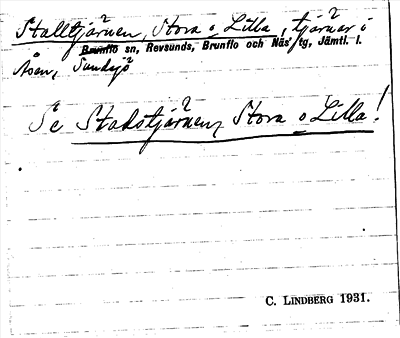 Stalltjärnen, Stora o Lilla, tjärnar i
Brunflo sn, Revsunds, Brunflo och Näs tg, Jämtl. l.
Åsen, Sundsjö
Se Stadstjärnen, Stora o Lilla!
C. LINDBERG 1931.